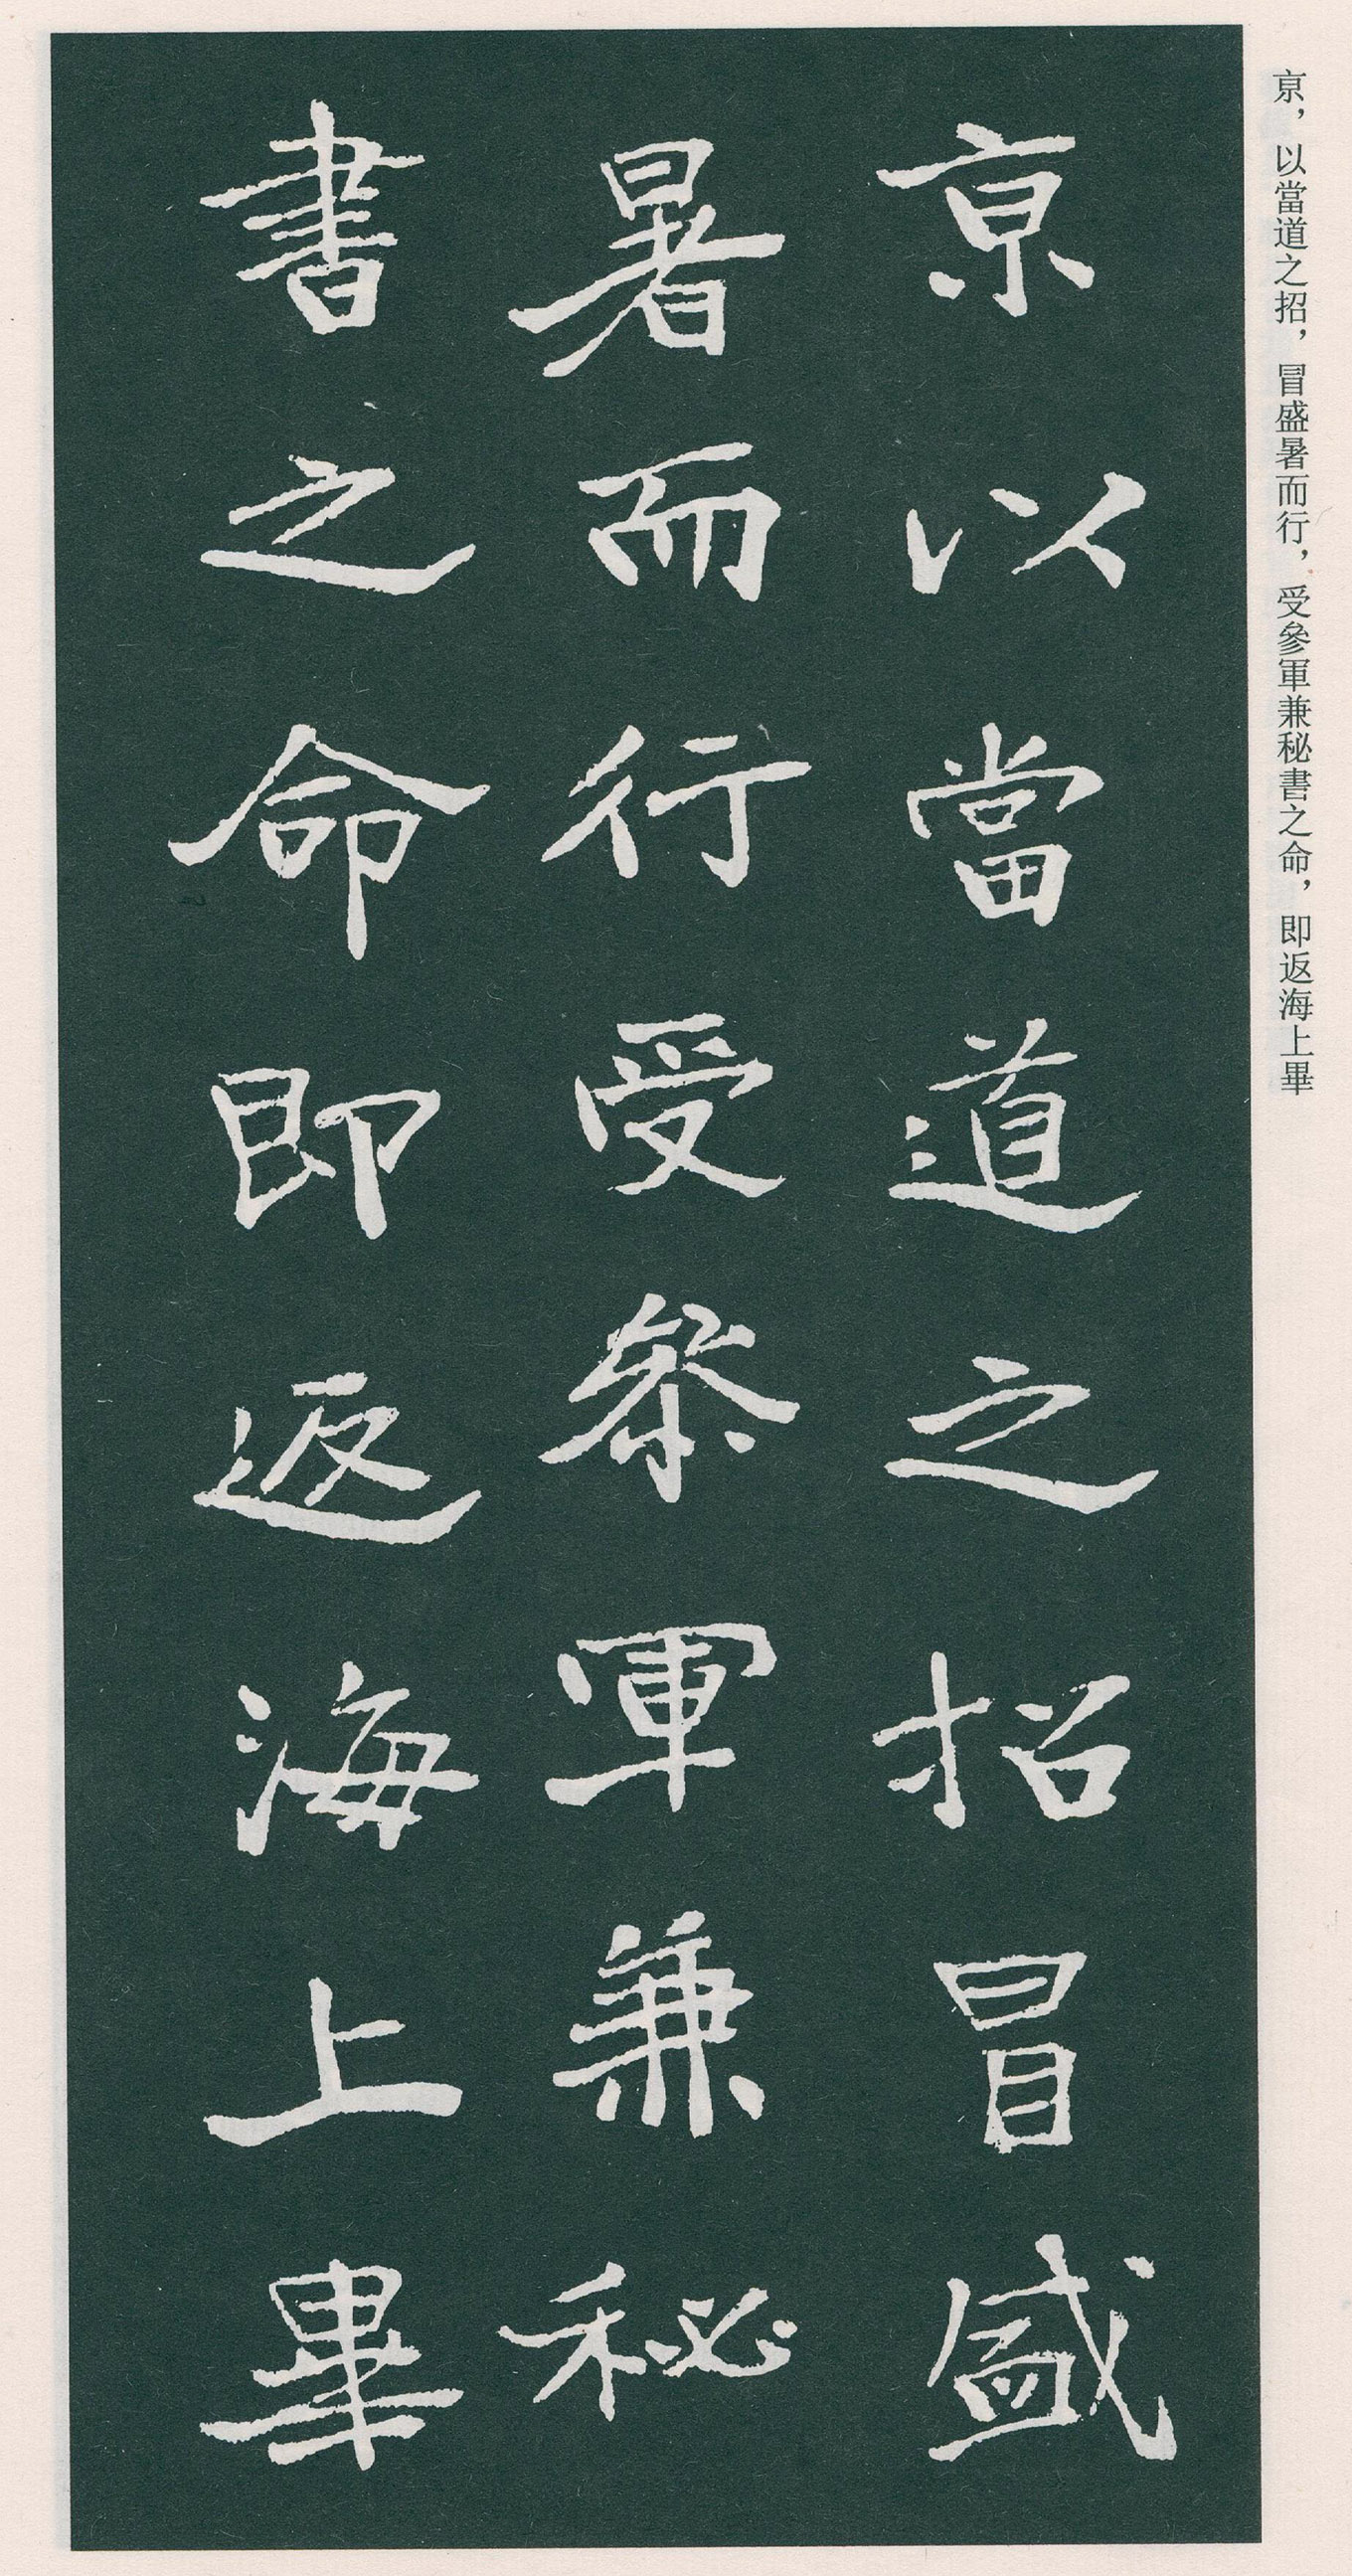 亰，以當道之招，冒盛暑而行，受參軍兼秘書之命，即返海上畢
亰以當道之招冒盛
暑而行受叅軍兼秘
書之命即返海上畢